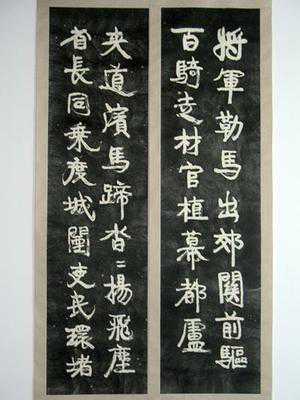 將軍勒馬出郊關前驅
百騎走材官植幕都廬
夾道濱馬蹄沓〻揚飛塵
省長同乘度城闉吏民環堵